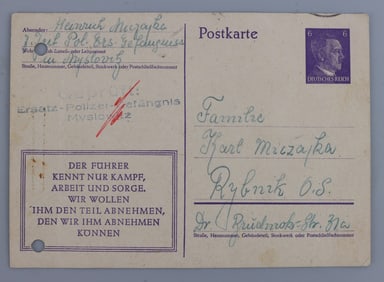 Absender: Heinrich Miczajka
z. Zeit Pol. Ers. Gefängniss
in Myslovitz
Straße, Hausnummer, Gebäudeteil, Stockwerk oder Postschließfachnummer
Geprüft
Ersatz-Polizei-Gefängnis
Myslowitz
DER FÜHRER
KENNT NUR KAMPF,
ARBEIT UND SORGE.
WIR WOLLEN
IHM DEN TEIL ABNEHMEN,
DEN WIR IHM ABNEHMEN
KÖNNEN
Postkarte
6 6
DEUTSCHES REICH
Familie
Karl Miczajka
Rybnik O.S.
Dr.
Straße, Hausnummer, Gebäudeteil, Stockwerk oder Postschließfachnummer